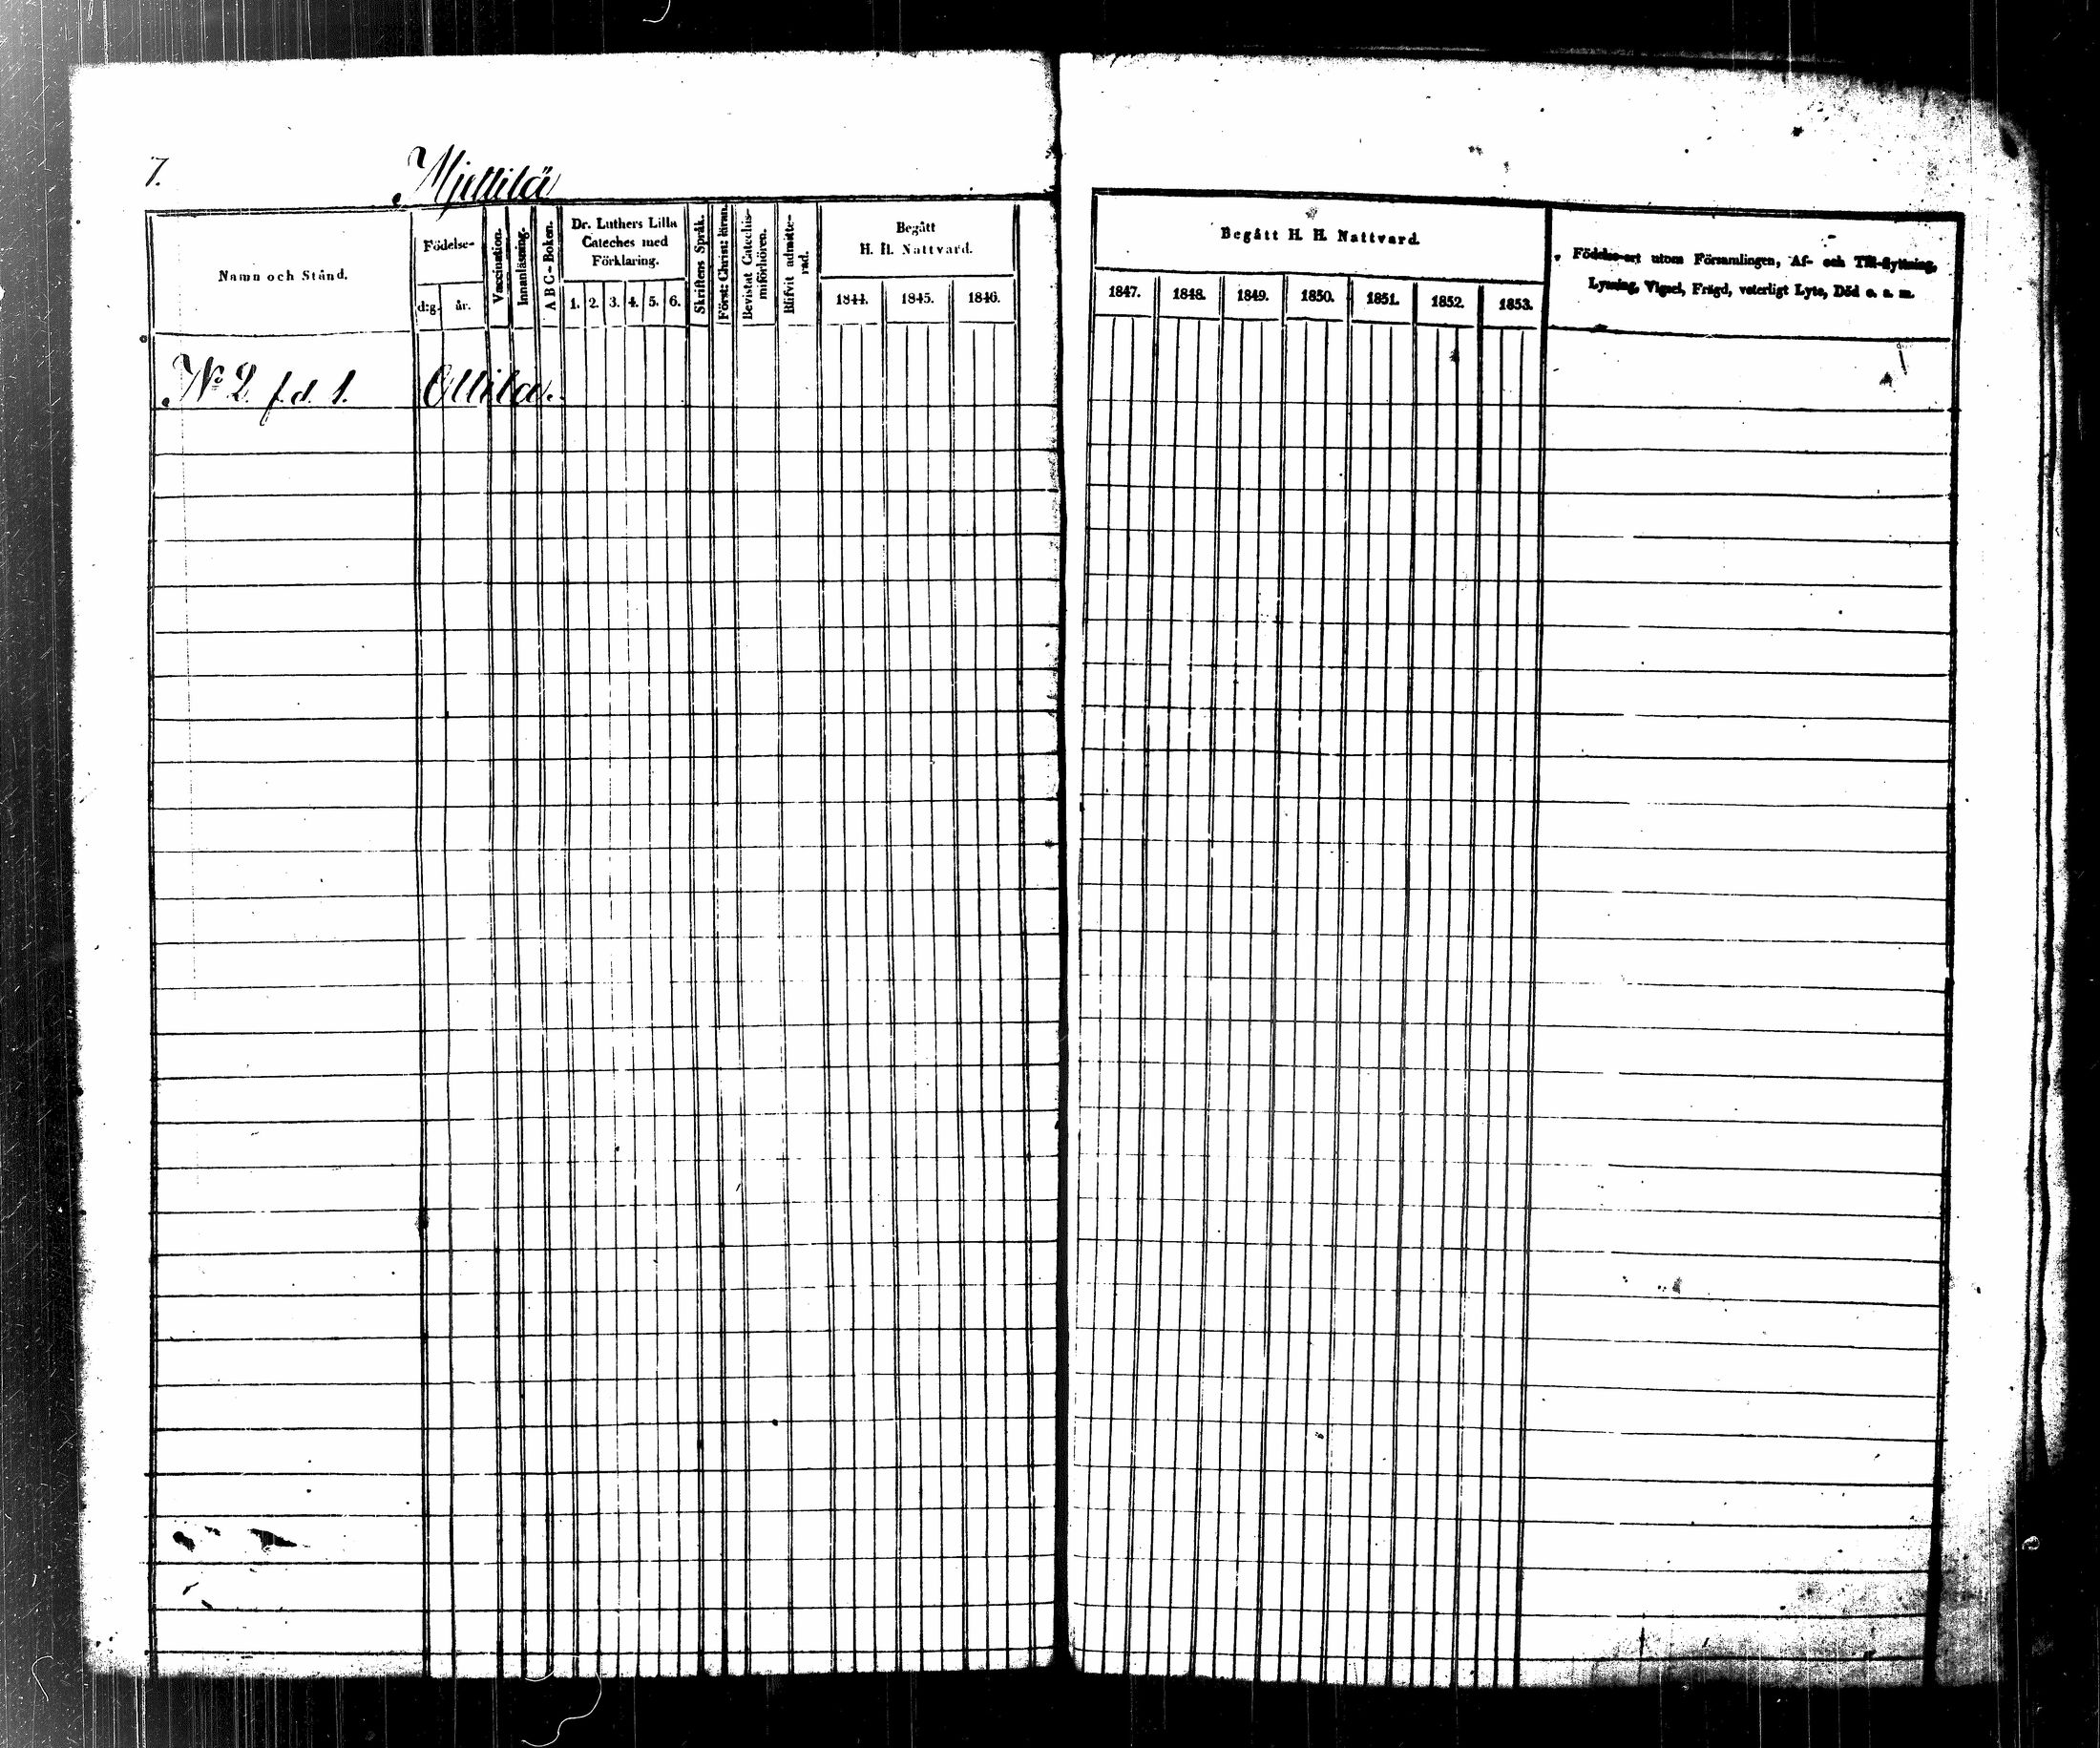 7.
Mjettilä
Namn och Stånd.
Födelse-
d:g.
år.
Vaccination.
Innanläsning.
A B C - Boken.
Dr. Luthers Lilla
Cateches med
Förklaring.
1. 2. 3. 4. 5. 6.
Skriftens Språk.
Först: Christ: läran.
Bevistat Catechis-
miförhören.
Blifvit admitte-
rad.
Begått
H. H. Nattvard.
1844. 1845. 1846.
Begått H. H. Nattvard.
1847. 1848. 1849. 1850. 1851. 1852. 1853.
Födelse-ort utom Församlingen, Af- och Till-flyttning,
Lysning, Vigsel, Frägd, veterligt Lyte, Död o. s. m.
No 2 f. d. 1. Ottila.